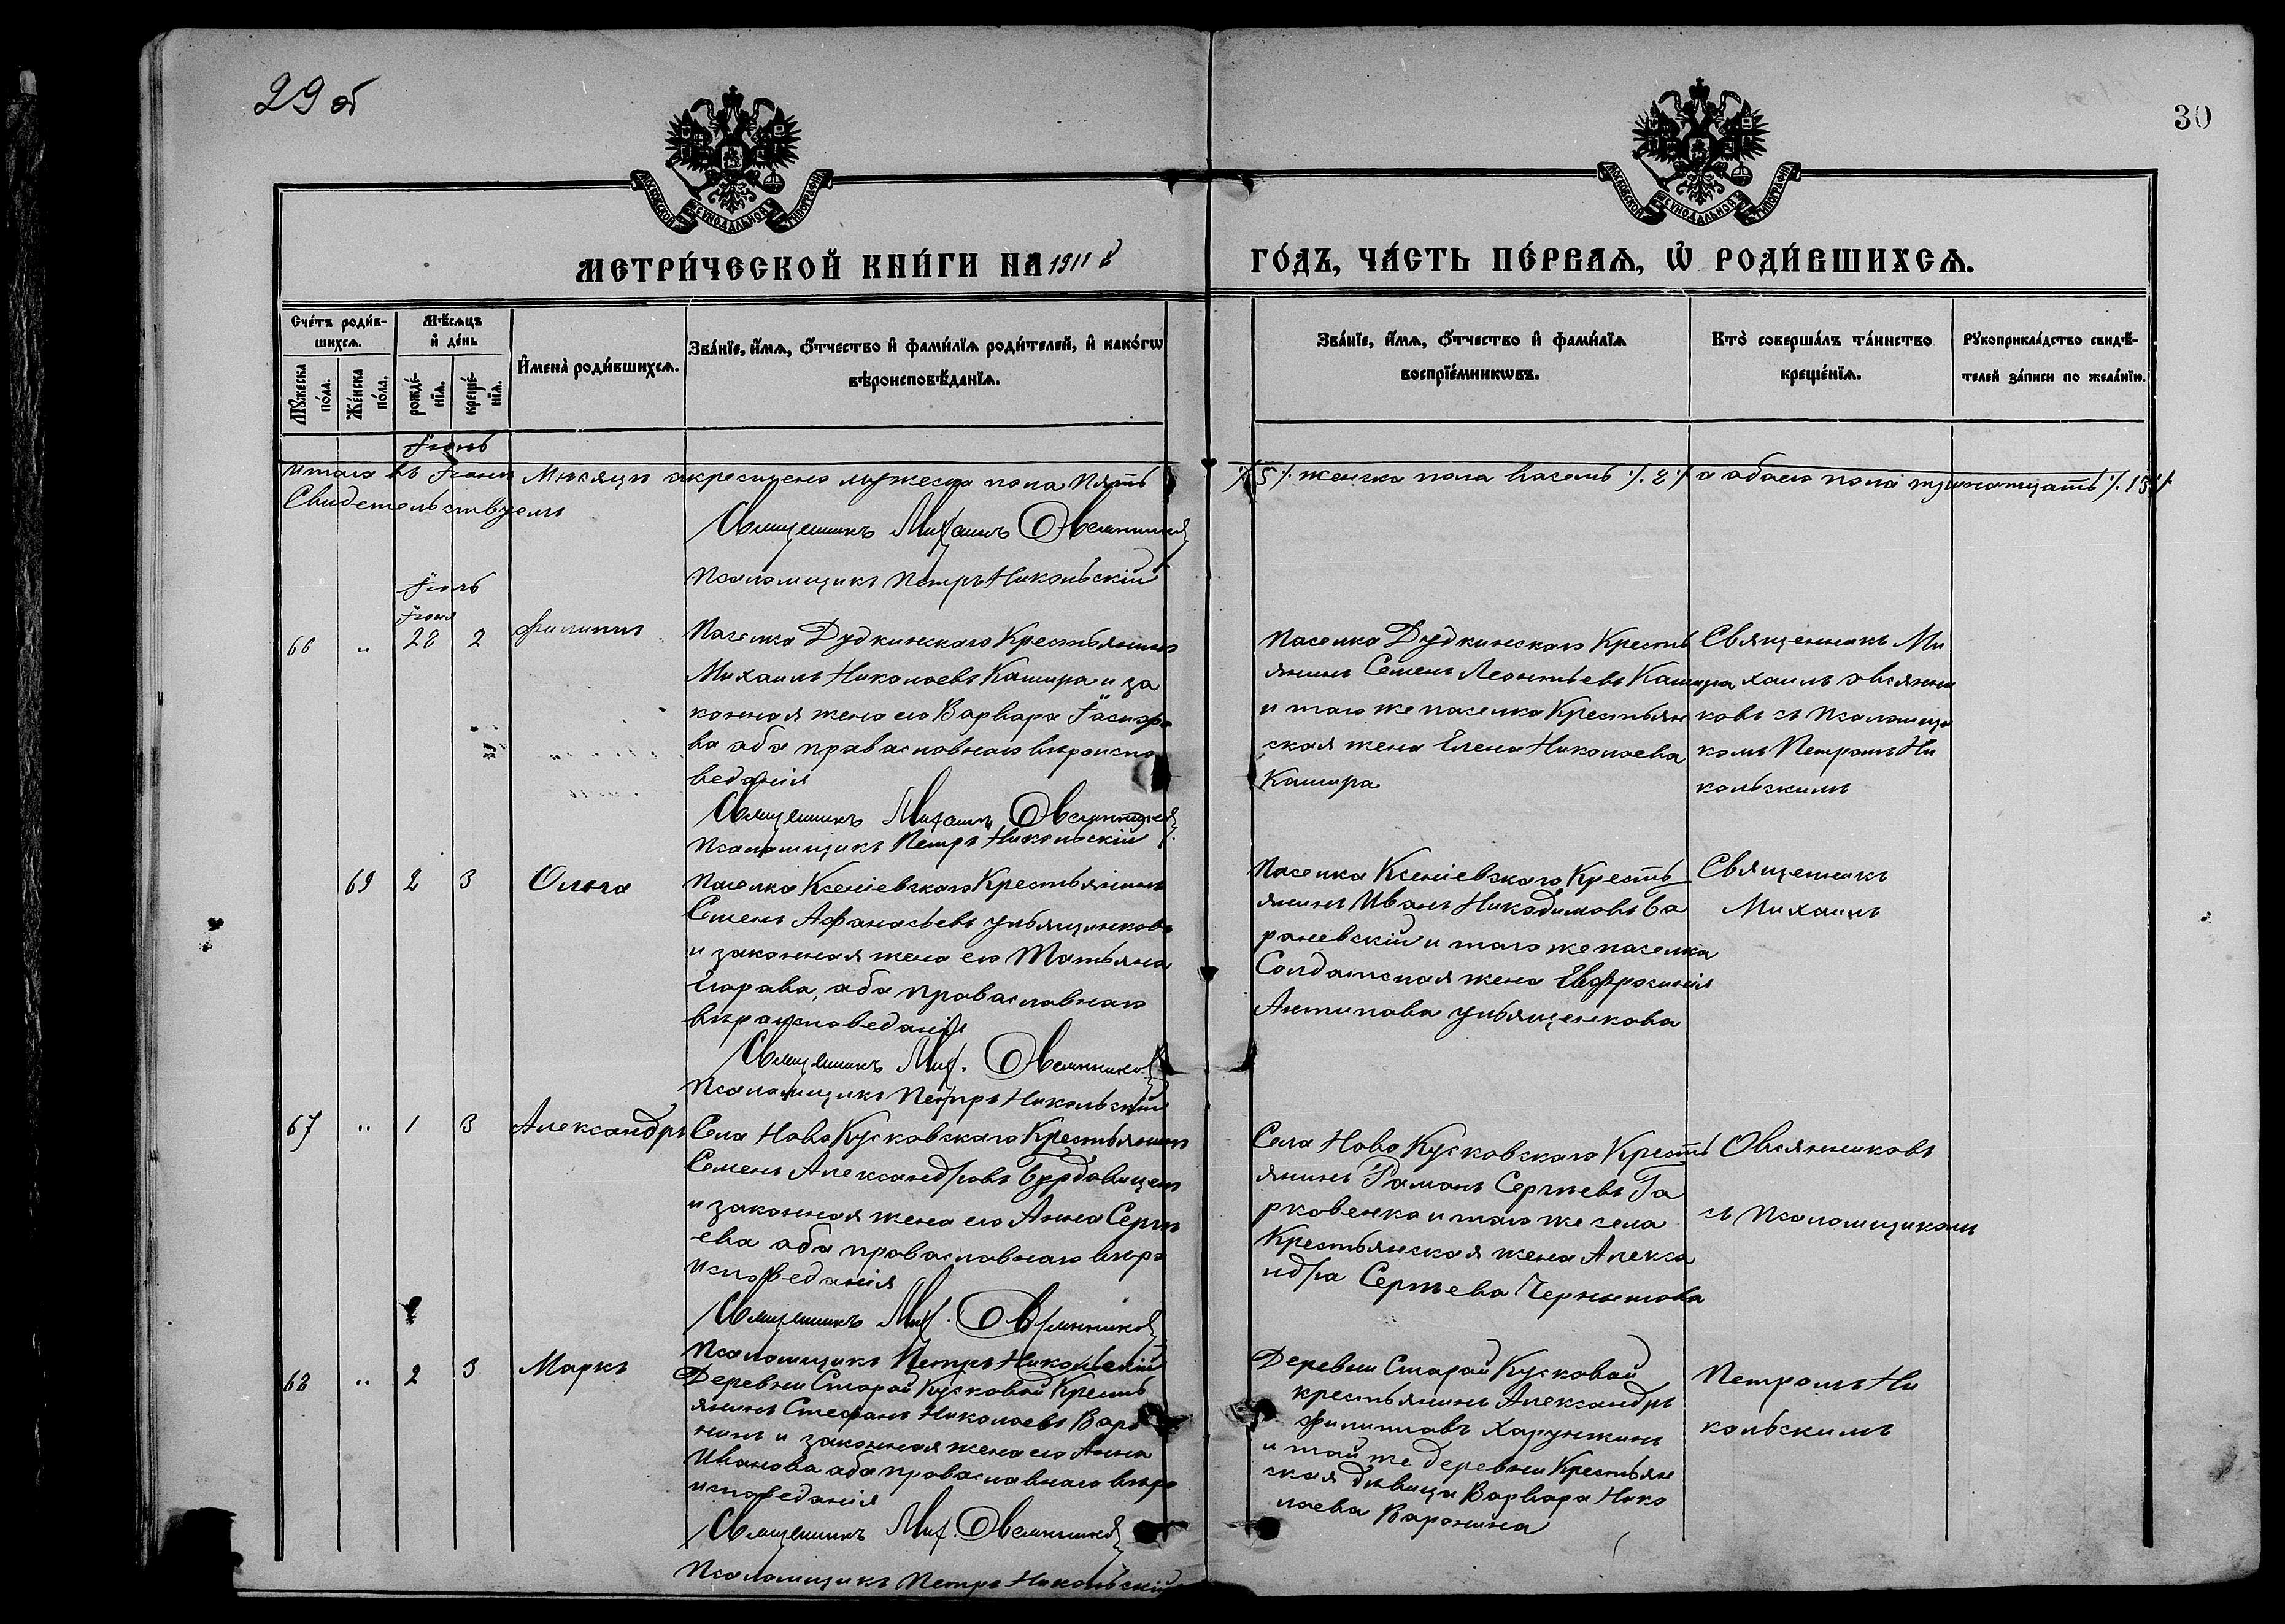 29 об
30
МОСКОВСКОЙ СУНОДАЛЬНОЙ ТИПОГРАФІИ
МОСКОВСКОЙ СУНОДАЛЬНОЙ ТИПОГРАФІИ
МЕТРИ́ЧЕСКОЙ КНИ́ГИ НА 1911 й
ГО́ДЪ, ЧА́СТЬ ПЕ́РВАѦ, Ѡ҆ РОДИ́ВШИХСѦ.
Сче́тъ роди́в-
шихсѧ.
Мꙋ́жеска по́ла.
Же́нска по́ла.
Мѣ́сѧцъ
и҆ де́нь
рожде́-нїѧ.
креще́-нїѧ.
И҆мена̀ роди́вшихсѧ.
Зва́нїе, и҆́мѧ, ѻ҆́тчество и҆ фами́лїѧ роди́телей, и҆ како́гѡ
вѣроисповѣ́данїѧ.
Зва́нїе, и҆́мѧ, ѻ҆́тчество и҆ фами́лїѧ
воспрїе́мникѡвъ.
Кто̀ соверша́лъ та́инство
креще́нїѧ.
Рꙋкоприкла́дство свидѣ́-
телей за́писи по жела́нїю.
Іюнь
Итого въ Іюнѣ Мѣсяцѣ окрещено мужеска пола Пять
./. 5 ./. женска пола восемь ./. 8 ./. а обоего пола тринатцать ./. 13 ./.
Свидетельствуемъ
Священникъ Михаилъ Овсянниковъ
Псаломщикъ Петръ Никольскій
Іюль
Іюня
66 " 28 2 Филиппъ
Поселка Дудкинскаго Крестьянинъ
Михаилъ Николаевъ Кашира и за
конная жена его Варвара
ва оба православнаго вѣроиспо
веданія
Священникъ Михаилъ Овсянниковъ
Псаломщикъ Петръ Никольскій
Поселка Дудкинскаго Кресть
янинъ Семенъ Леонтьевъ Кашира
и того же поселка Крестьян
ская жена Елена Николаева
Кашира
Священникъ Ми
хаилъ Овсянни
ковъ съ Псаломщи
комъ Петромъ Ни
кольскимъ
69 2 3 Ольга
Поселка Ксеніевскаго Крестьянинъ
Семенъ Афанасьевъ Ульященковъ
и законная жена его Татьяна
Егорова, оба православнаго
вѣроисповеданія
Священникъ Мих. Овсянниковъ
Псаломщикъ Петръ Никольскій
Поселка Ксеніевскаго Кресть
янинъ Иванъ Никодимовъ Ба
раневскій и того же поселка
Солдатская жена Евфросинія
Антипова Ульященкова
Священникъ
Михаилъ
67 " 1 3 Александръ
Села Ново Кусковскаго Крестьянинъ
Семенъ Александровъ
и законная жена его Анна Серге
ева оба православнаго вѣро
исповеданія
Священникъ Мих. Овсянниковъ
Псаломщикъ Петръ Никольскій
Села Ново Кусковскаго Кресть
янинъ Романъ Сергѣевъ Га
рковенко и того же села
Крестьянская жена Алекса
ндра Сергѣева
Овсянниковъ
съ Псаломщикомъ
68 " 2 3 Маркъ
Деревни Старой Кусковой Кресть
янинъ Стефанъ Николаевъ Воро
нинъ и законная жена его Анна
Иванова оба православнаго вѣро
исповеданія
Священникъ Мих. Овсянниковъ
Псаломщикъ Петръ Никольскій
Деревни Старой Кусковой
крестьянинъ Александръ
Филипповъ Харунжинъ
и той же деревни Крестьян
ская дѣвица Варвара Нико
лаева Воронина
Петромъ Ни
кольскимъ